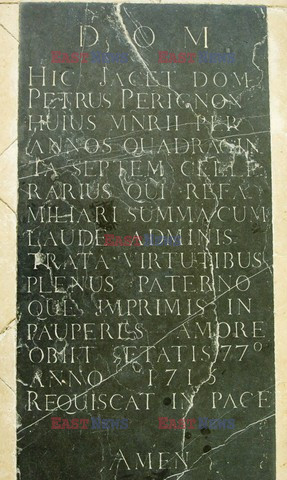 D O M
HIC JACET DOM
PETRUS PERIGNON
HUIUS MNRII PER
ANNOS QUADRAGIN
TA SEPTEM CELLE
RARIUS QUI REFA
MILIARI SUMMA CUM
LAUDE ADMINIS
TRATA VIRTUTIBUS
PLENUS PATERNO
QUE IMPRIMIS IN
PAUPERES AMORE
OBIIT ÆTATIS 77°
ANNO 1715
REQUISCAT IN PACE
AMEN
EAST NEWS
EAST NEWS
EAST NEWS
EAST NEWS
EAST NEWS